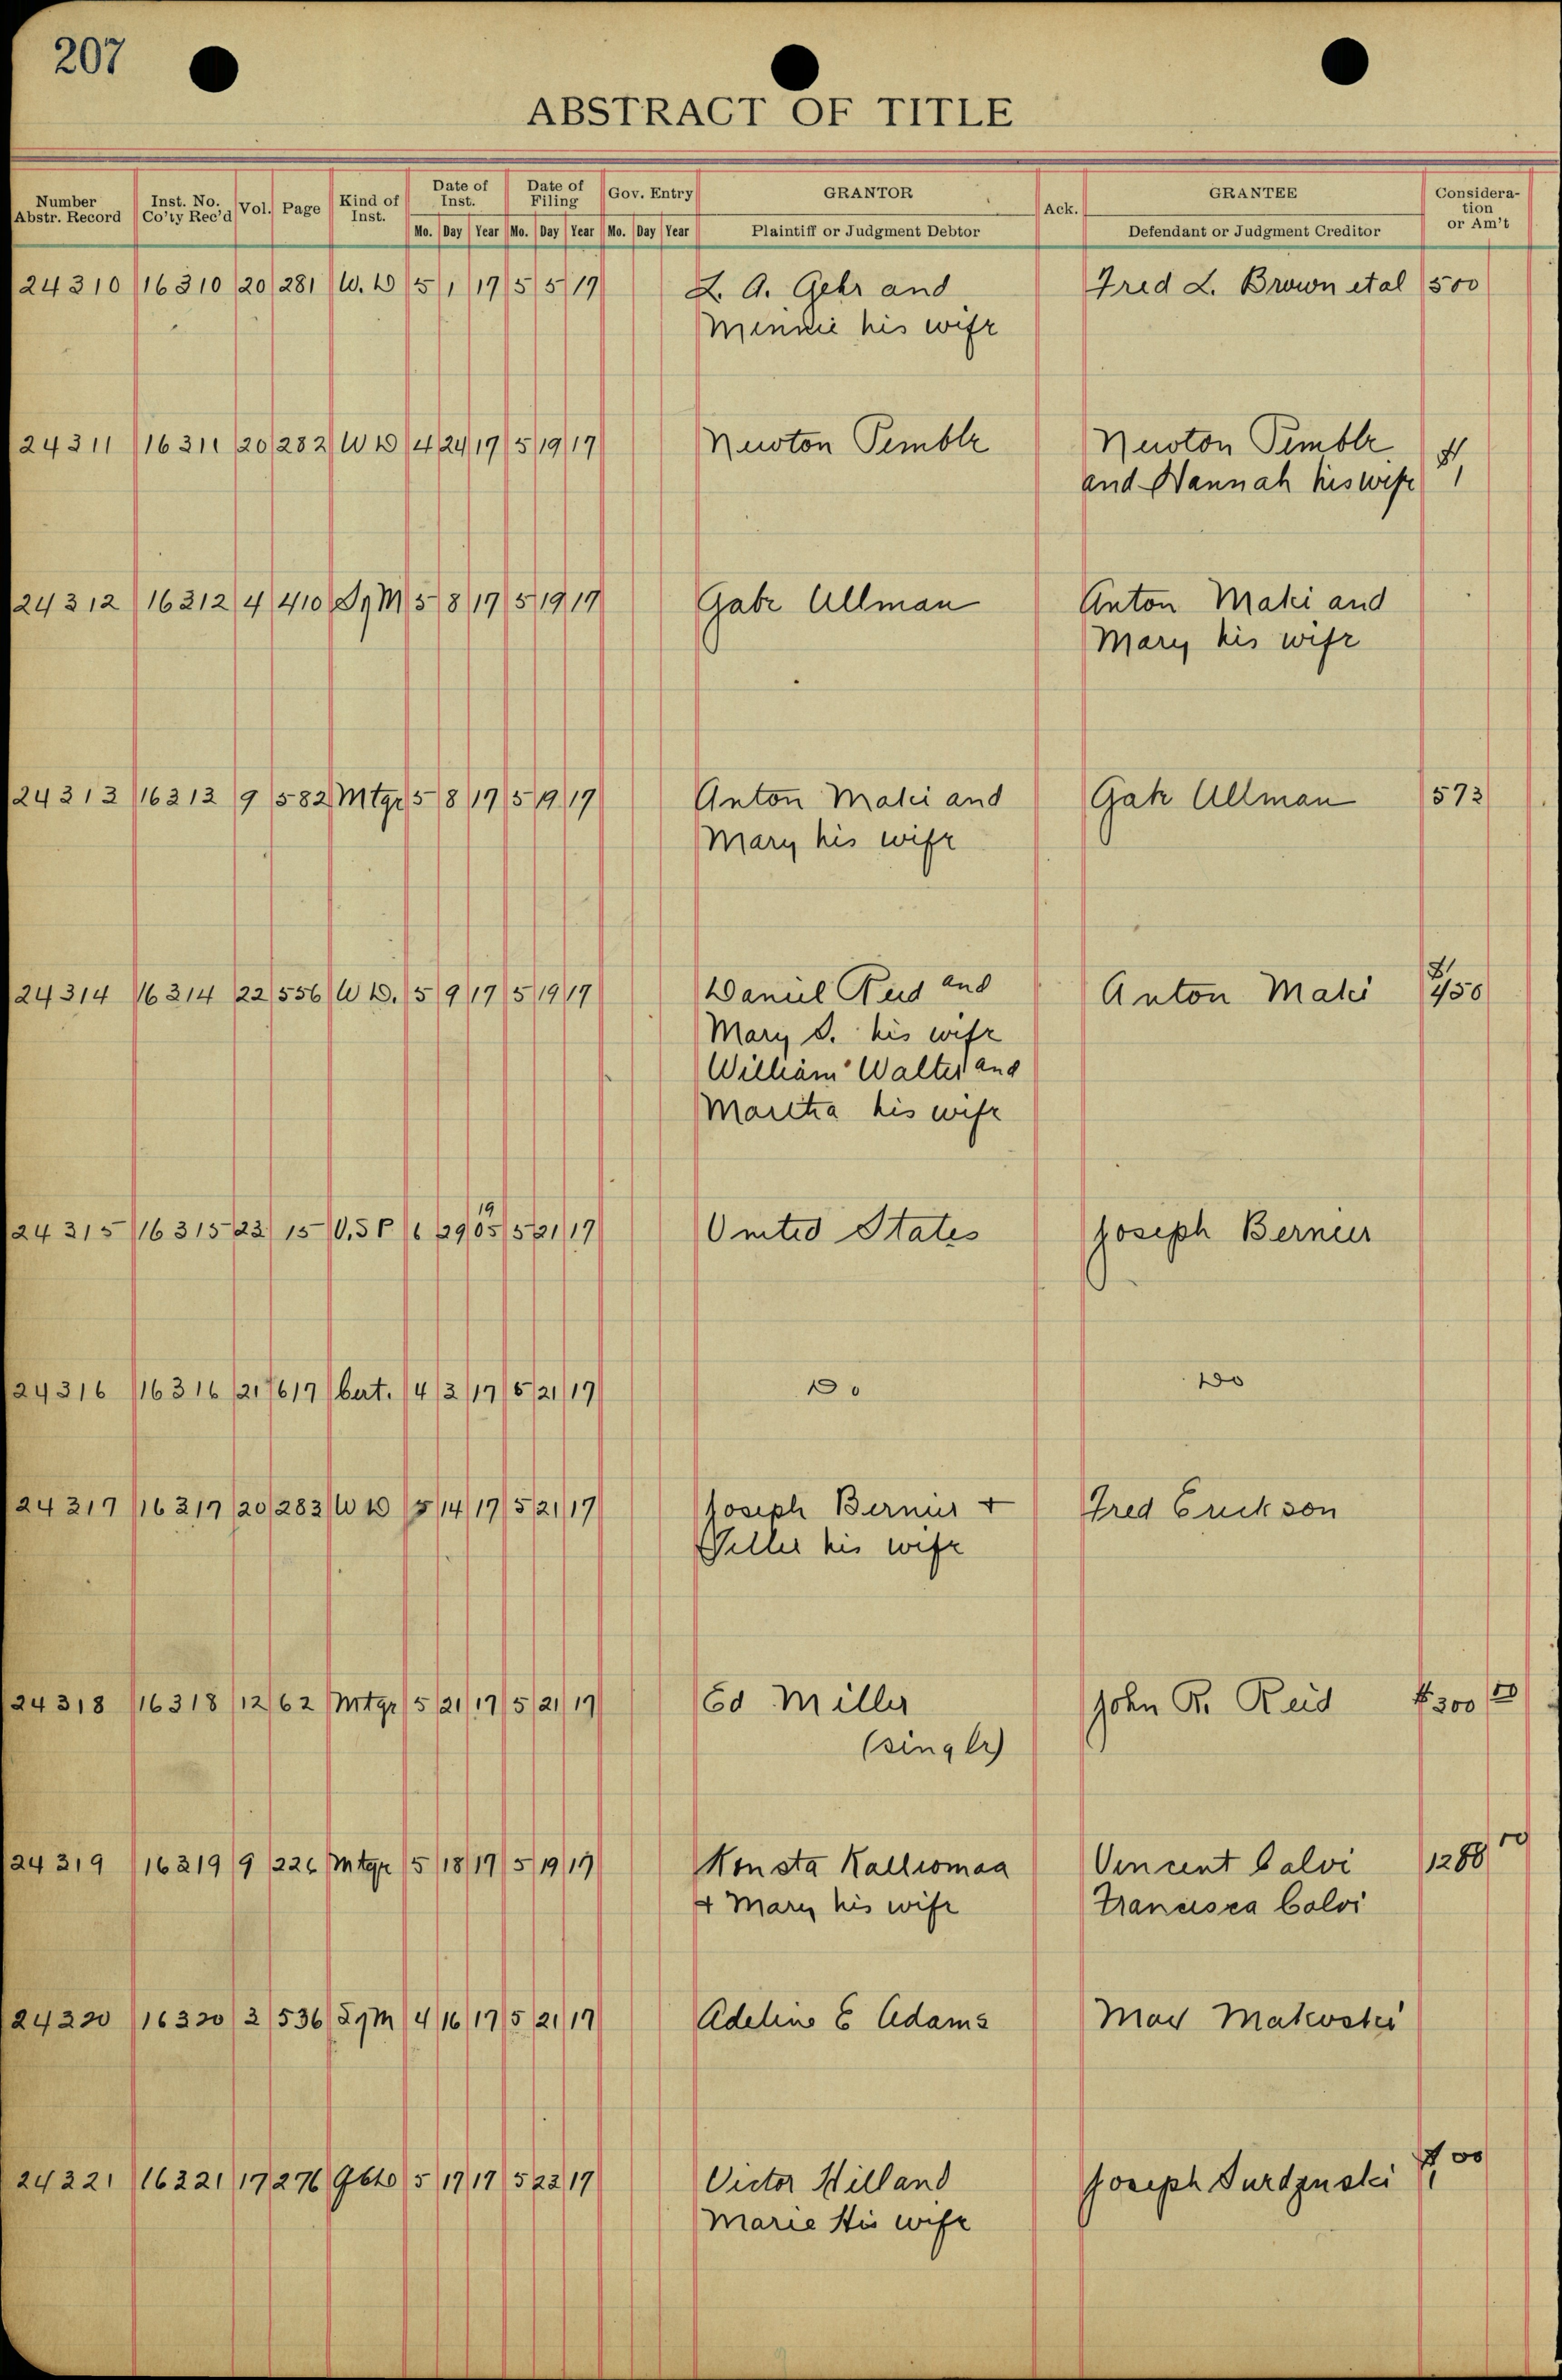 207
ABSTRACT OF TITLE
Number Abstr. Record Inst. No. Co'ty Rec'd Vol. Page Kind of Inst. Date of Inst. Date of Filing Gov. Entry GRANTOR Ack. GRANTEE Considera-tion or Am't
Mo. Day Year Mo. Day Year Mo. Day Year Plaintiff or Judgment Debtor Defendant or Judgment Creditor
24310 16310 20 281 W. D 5 1 17 5 5 17 L. A. Gehr and Fred L. Brown et al 500
Minnie his wife
24311 16311 20 282 W D 4 24 17 5 19 17 Newton Pemble Newton Pemble
and Hannah his wife $1
24312 16312 4 410 5 8 17 5 19 17 Gabe Ullman Anton Maki and
Mary his wife
24313 16313 9 582 Mtge 5 8 17 5 19 17 Anton Maki and Gabe Ullman 573
Mary his wife
24314 16314 22 556 W D. 5 9 17 5 19 17 Daniel Reid and Anton Maki $450
Mary S. his wife
William Walter and
Martha his wife
24315 16315 23 15 U.S P 6 29 1905 5 21 17 United States Joseph Bernier
24316 16316 21 617 Cert. 4 3 17 5 21 17 Do Do
24317 16317 20 283 W D 5 14 17 5 21 17 Joseph Bernier + Fred Erickson
his wife
24318 16318 12 62 Mtge 5 21 17 5 21 17 Ed Miller John R. Reid $300 00
(single)
24319 16319 9 226 Mtge 5 18 17 5 19 17 Konsta Kalliomaa Vincent Calvi 1288
+ Mary his wife Francisca Calvi
24320 16320 3 536 4 16 17 5 21 17 Adeline E Adams Max Makoski
24321 16321 17 276 5 17 17 5 22 17 Victor Hill and Joseph $1 00
Marie His wife